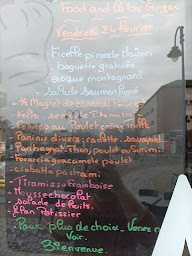 Food and Co by Ginger
Vendredi 24 février
Ficelle picarde maison
baguette gratinée
croque montagnard
salade saumon fumé
Magret de canard
poulet crème truffe
Paninis divers: raclette, saumon
Panbagnat: Thon, poulet ou Surimi
Focaccia guacamole poulet
Ciabatta pastrami
Tiramisu framboise
Mousse chocolat
Salade de fruits.
Flan Patissier
Pour plus de choix. Venez n
voir.
Bienvenue.